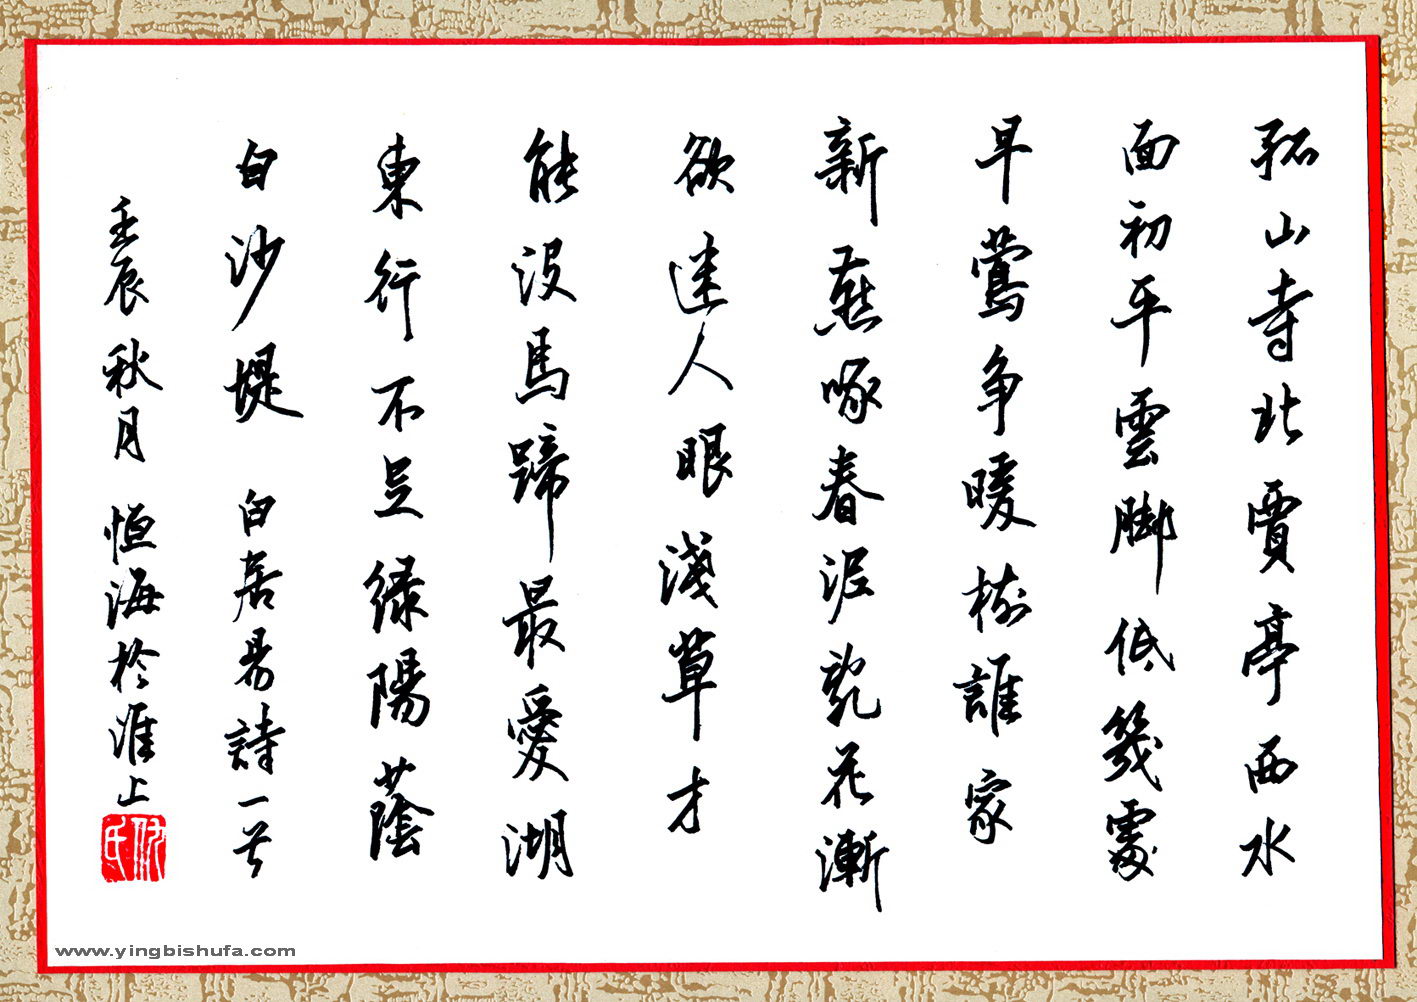 孤山寺北賈亭西水
面初平雲脚低幾處
早鶯争暖樹誰家
新燕啄春泥亂花漸
欲迷人眼淺草才
能没馬蹄最愛湖
東行不足綠陽蔭
白沙堤 白居易詩一首
壬辰秋月 恒海於淮上
www.yingbishufa.com